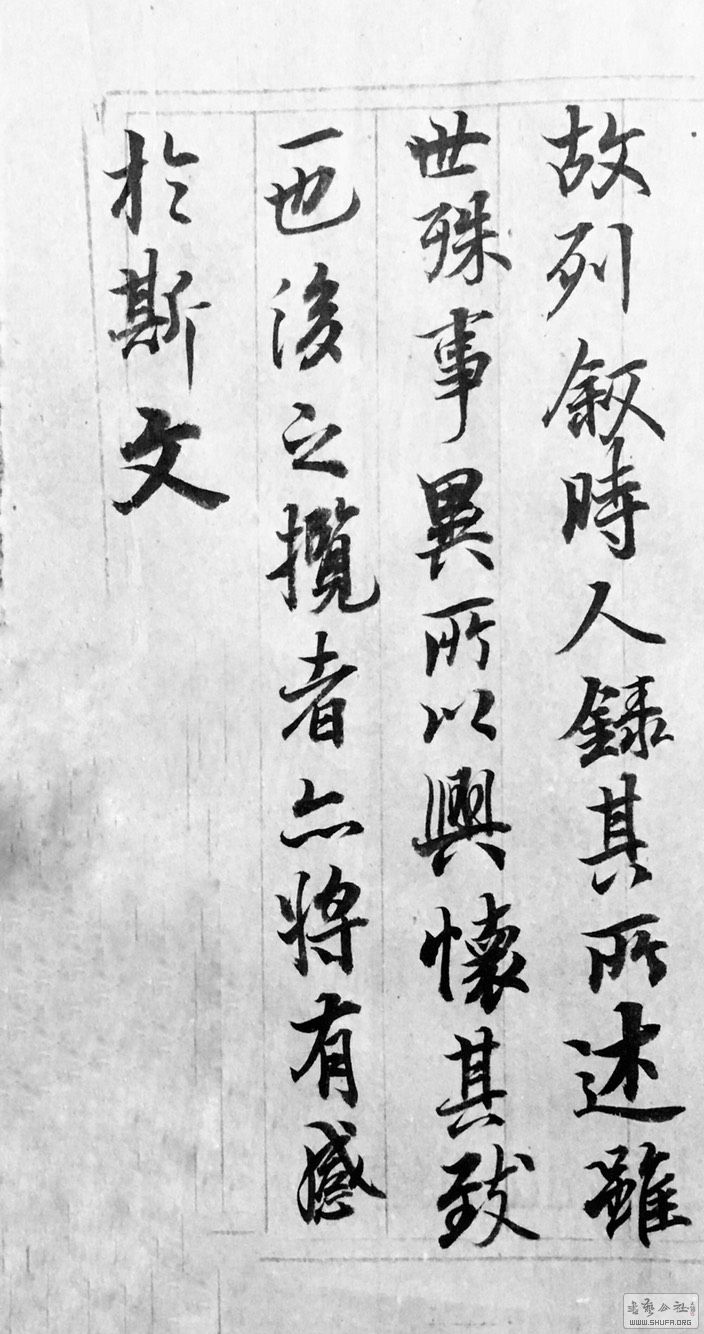 故列叙時人録其所述雖
世殊事異所以興懷其致
一也後之攬者亦將有感
於斯文
書藝公社
WWW.SHUFA.ORG